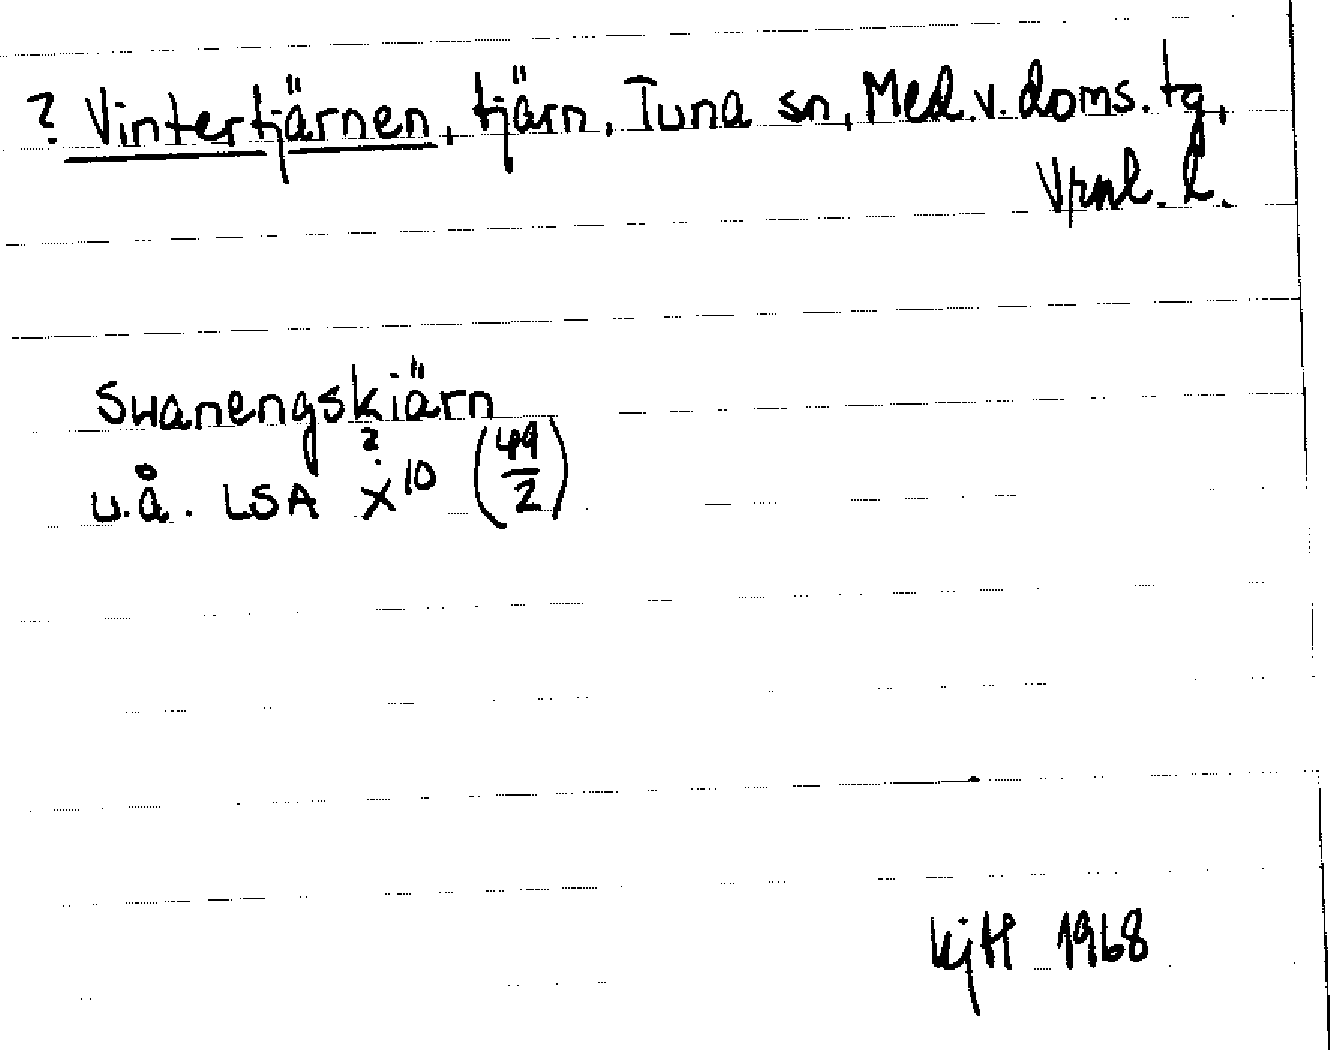 ? Vintertjärnen, tjärn, Tuna sn, Med.v.doms.tg,
Vrnl. l.
Swanengskiärn
u.å. LSA X² 10 (49/2)
KjH 1968